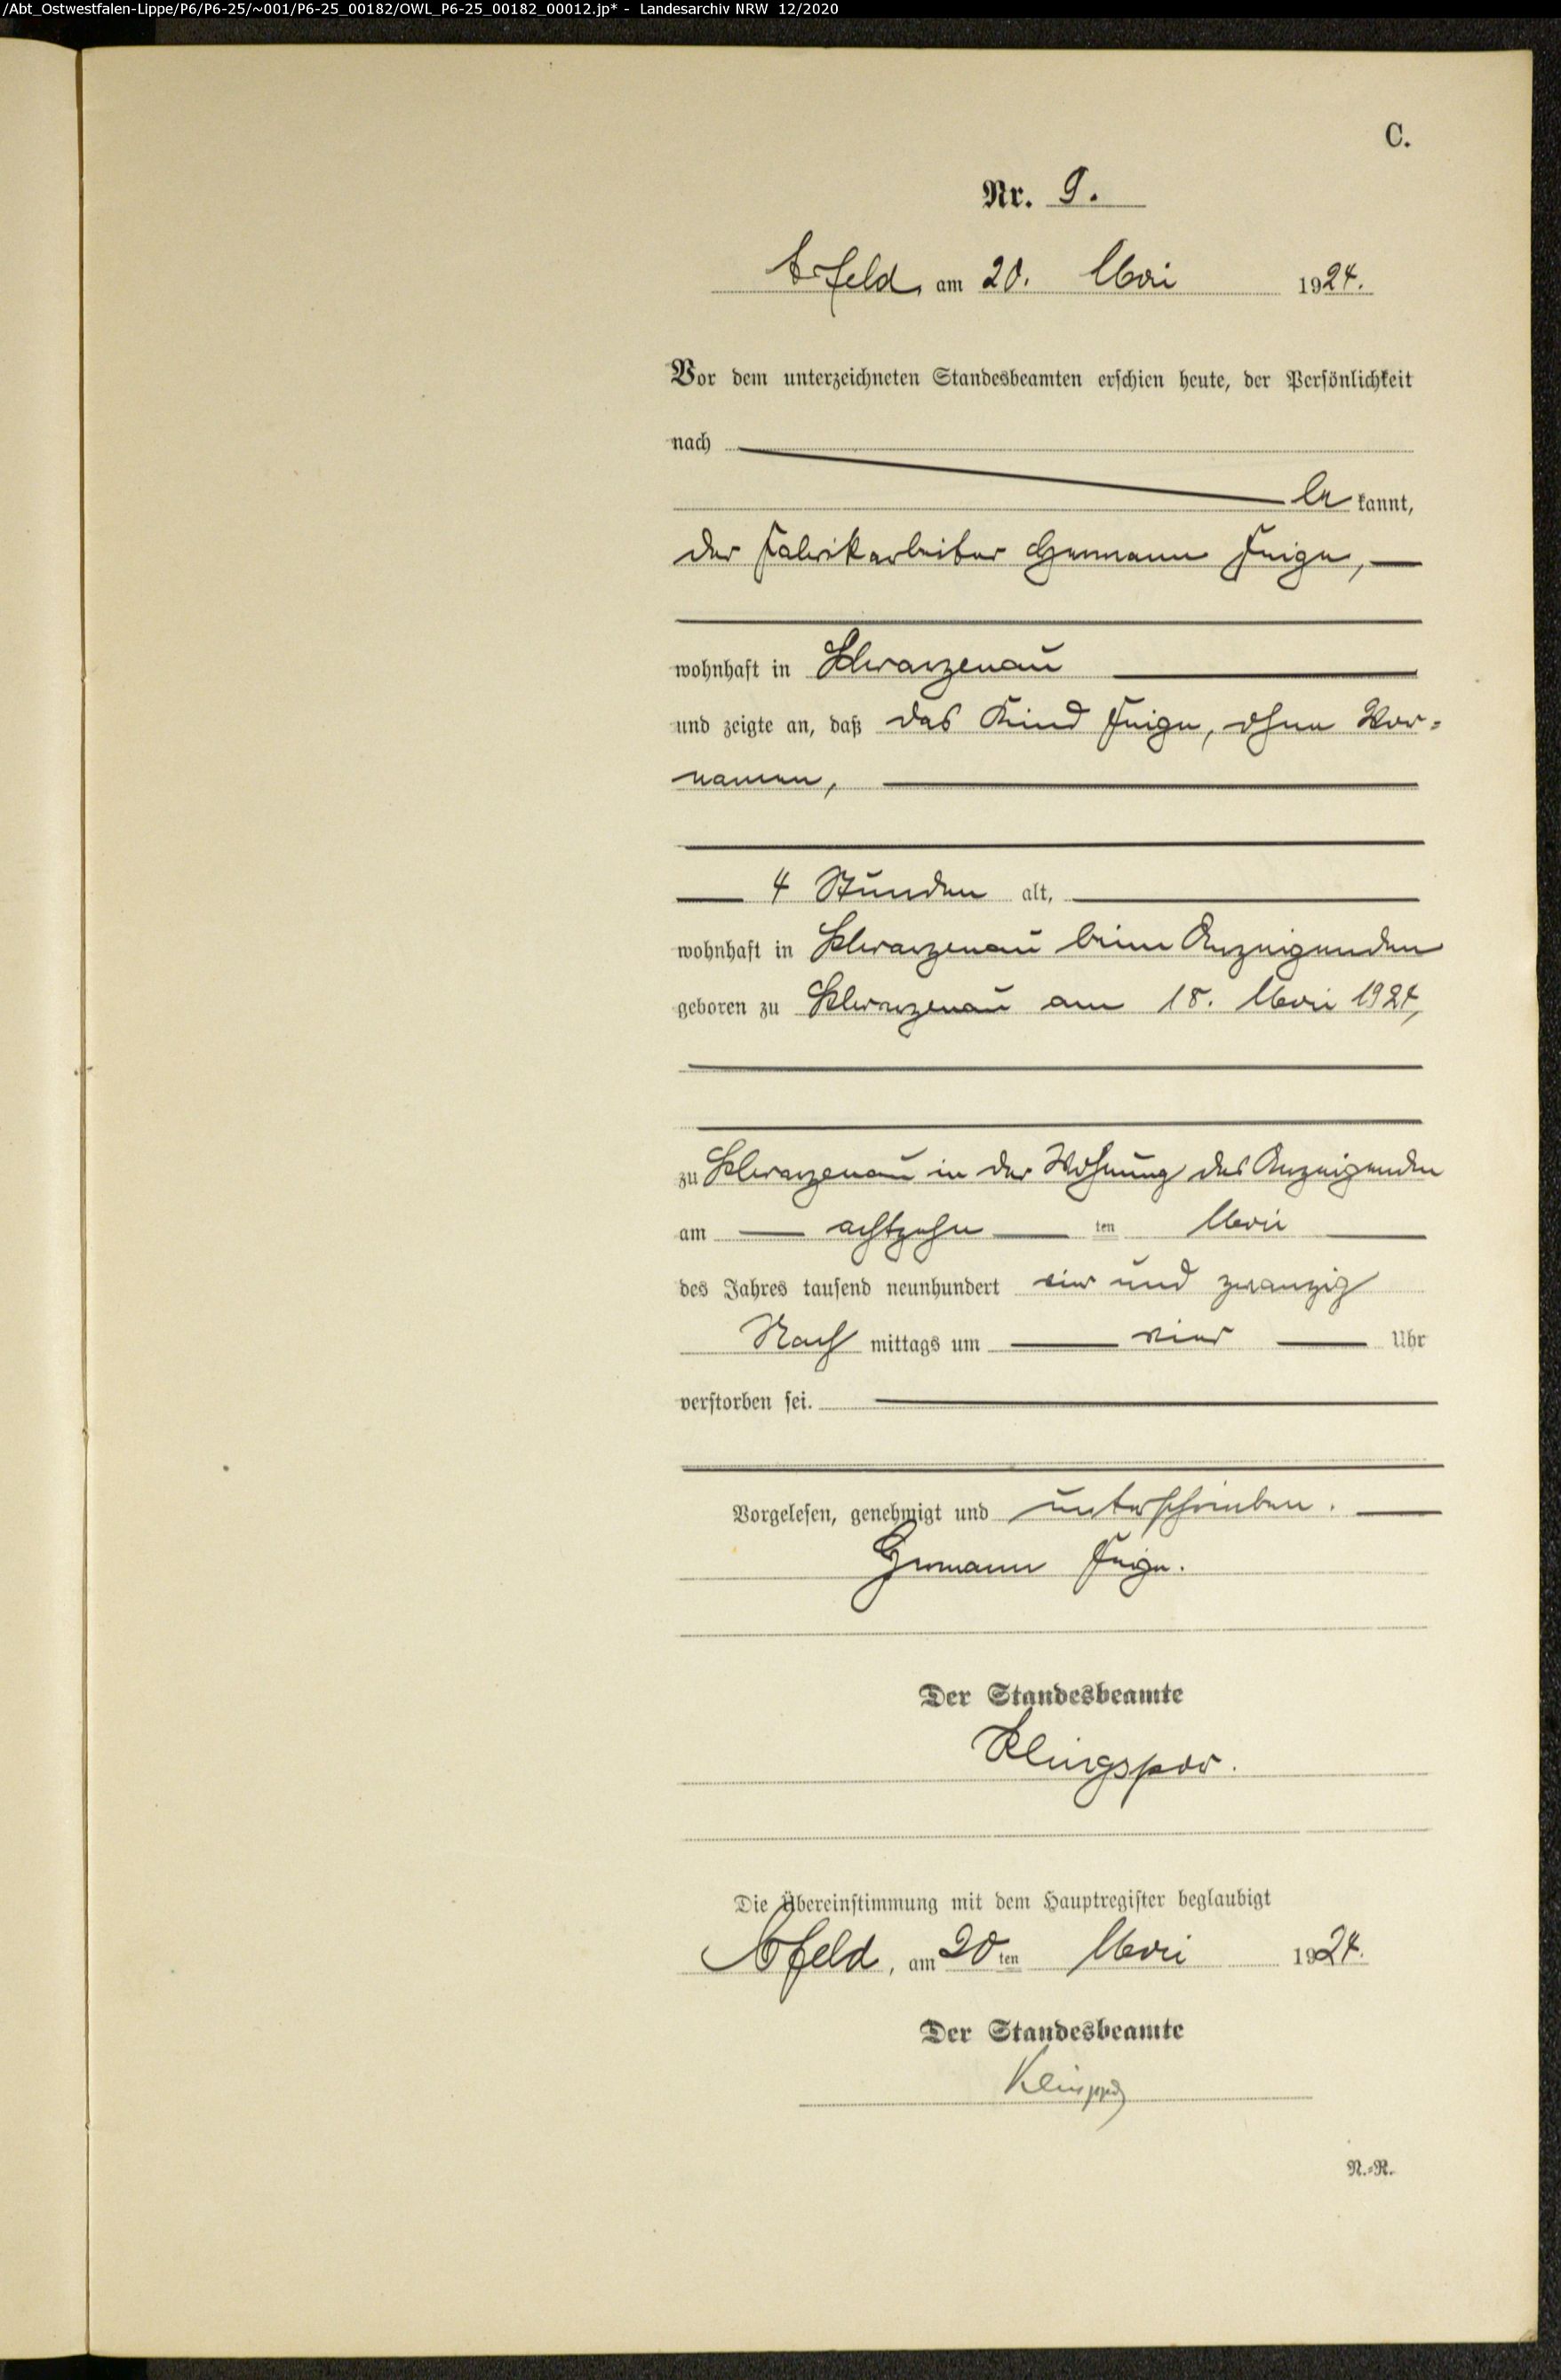 /Abt_Ostwestfalen-Lippe/P6/P6-25/~001/P6-25_00182/OWL_P6-25_00182_00012.jp* - Landesarchiv NRW 12/2020
C.
Nr. 9.
Arfeld, am 20. Mai 1924.
Vor dem unterzeichneten Standesbeamten erschien heute, der Persönlichkeit
nach
be kannt,
der Fabrikarbeiter Hermann Feige,
wohnhaft in Schwarzenau
und zeigte an, daß das Kind Feige, ohne Vor-
namen,
4 Stunden alt,
wohnhaft in Schwarzenau beim Anzeigenden
geboren zu Schwarzenau am 18. Mai 1924,
zu Schwarzenau in der Wohnung des Anzeigenden
am achtzehn ten Mai
des Jahres tausend neunhundert vier und zwanzig
Nach mittags um vier Uhr
verstorben sei.
Vorgelesen, genehmigt und unterschrieben.
Hermann Feige.
Der Standesbeamte
Klingspor.
Die Übereinstimmung mit dem Hauptregister beglaubigt
Arfeld, am 20 ten Mai 1924.
Der Standesbeamte
Klingspor
N.-R.